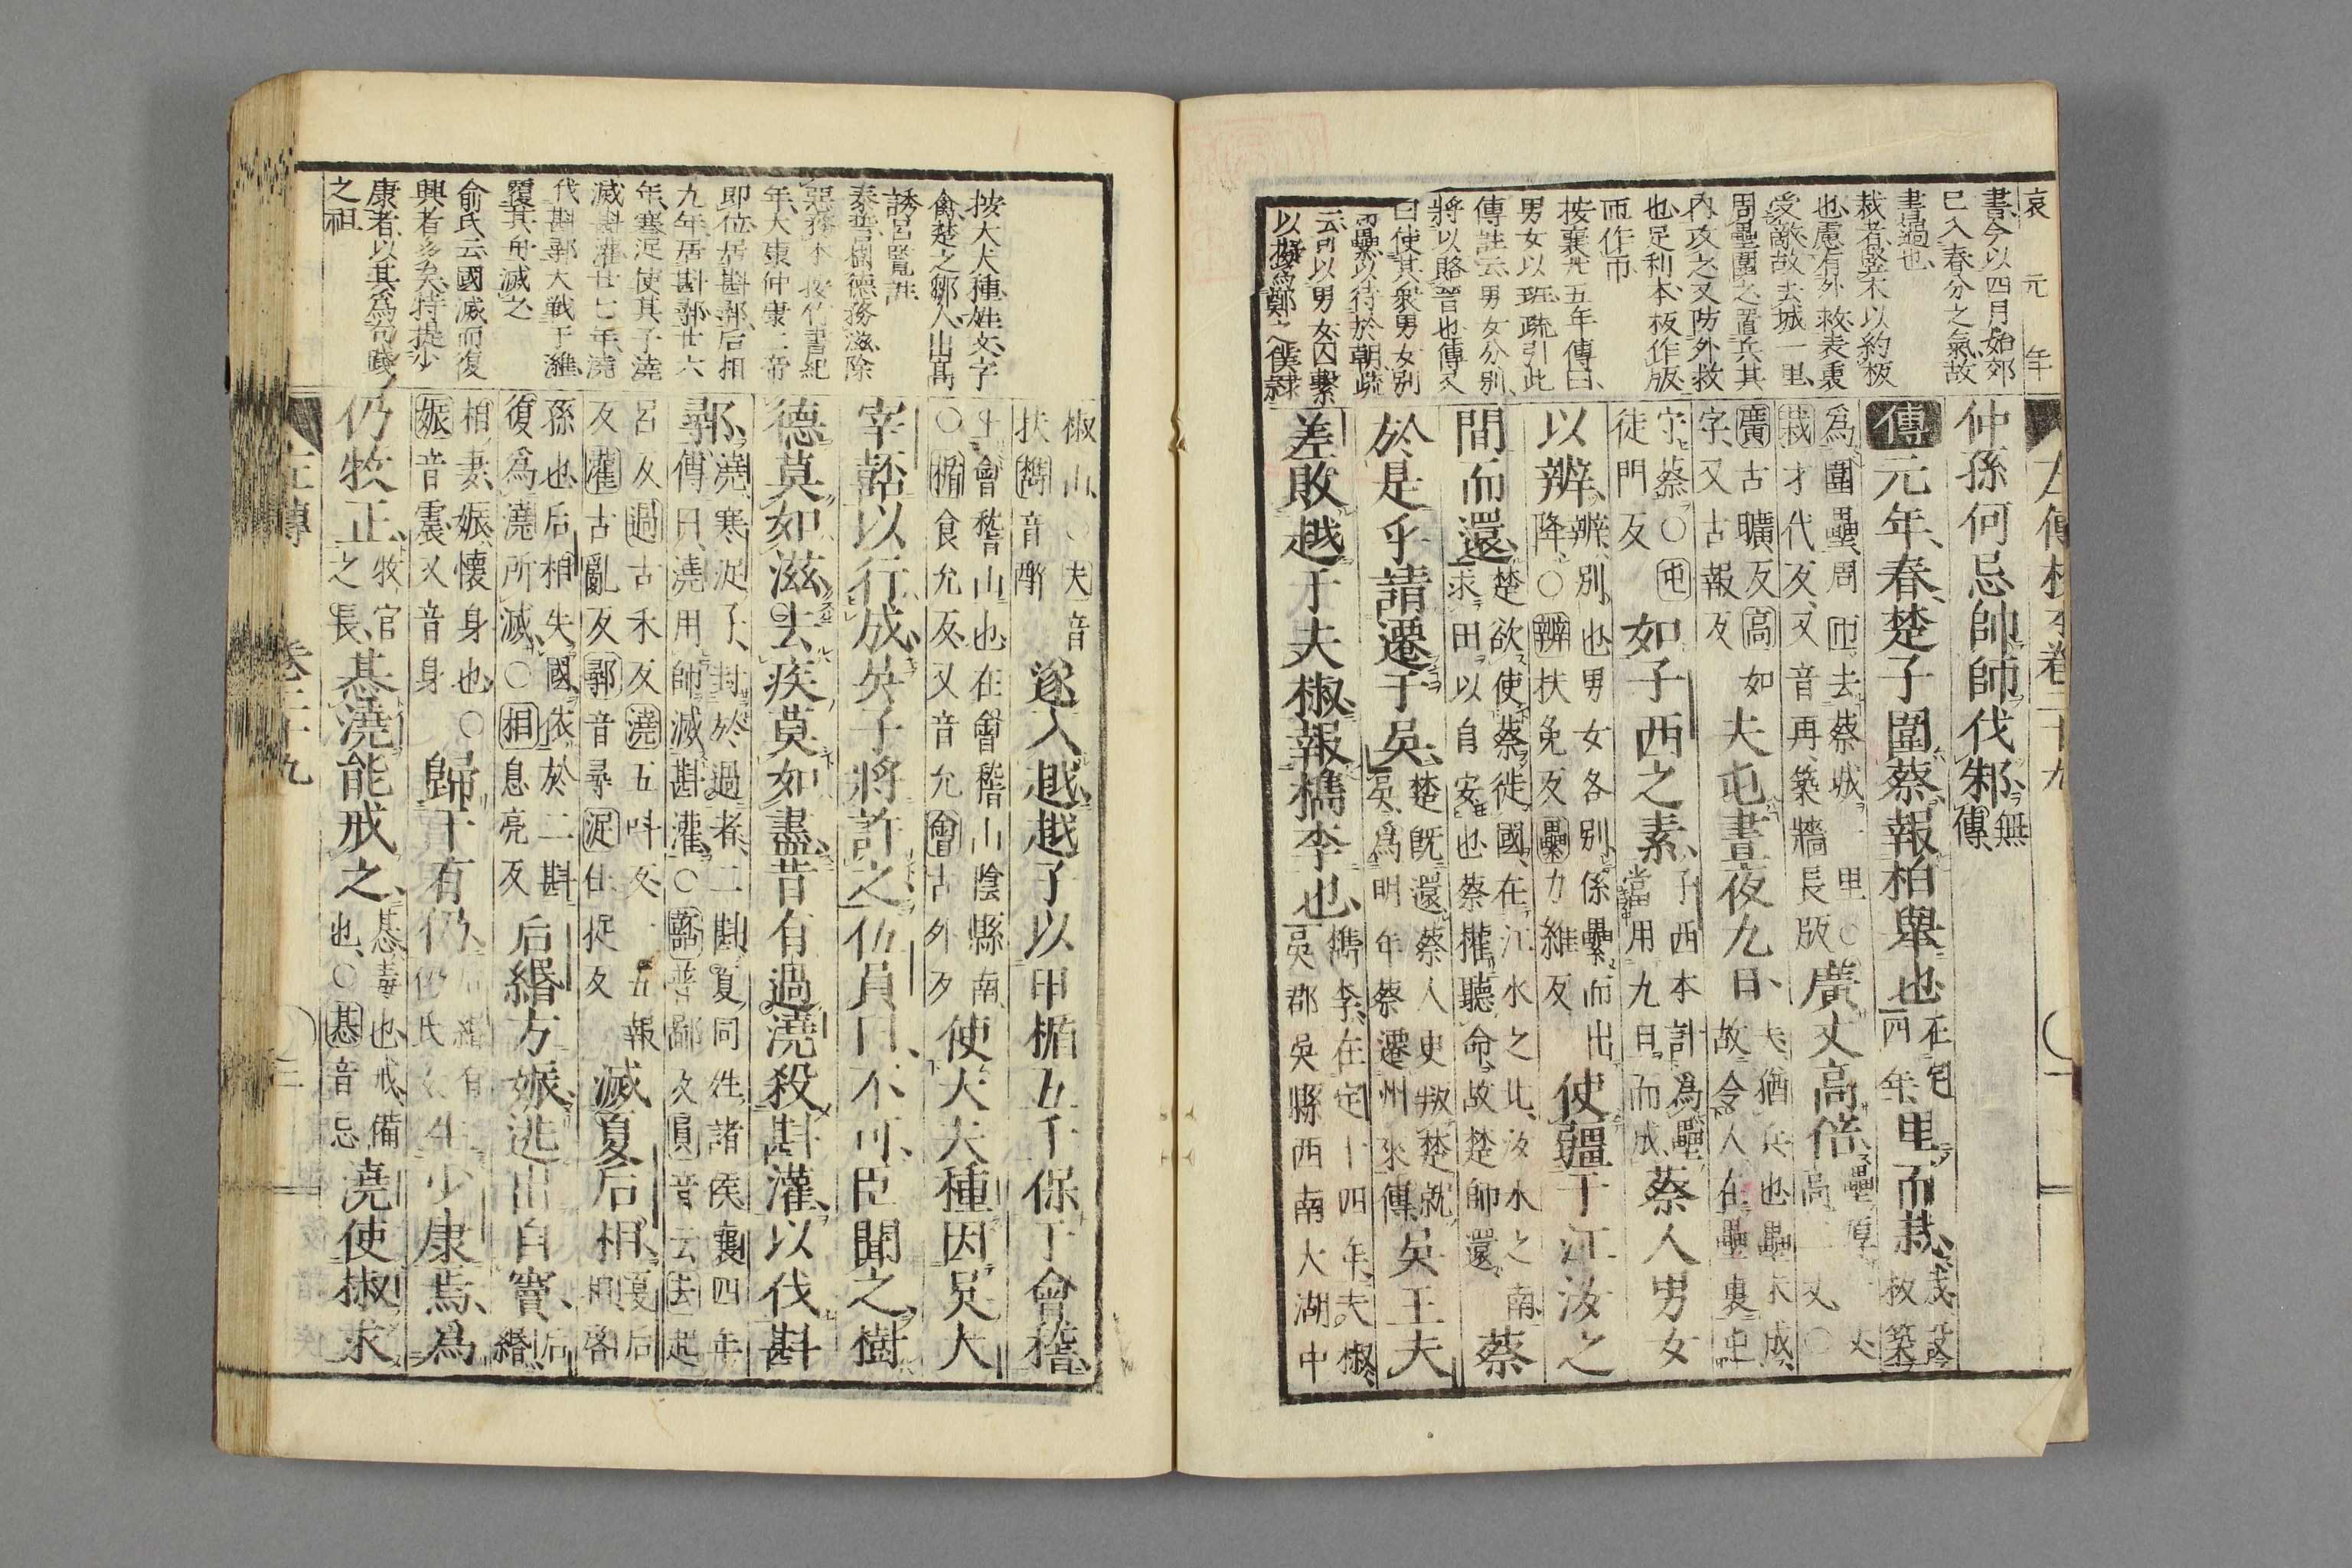 哀 元 年
書今以四月始郊
巳入春分之氣故
書過也
栽者竪木以約板
也慮有外救表裏
受敵故去城一里
周壘圍之置兵其
內攻之又防外救
也足利本板作版
匝作帀
按襄廿五年傳曰
男女以班疏引此
傳註云男女分別
將以賂晉也傳又
曰使其衆男女別
而纍以待於朝疏
云所以男女囚繫
以擬爲鄭之僕隷
仲孫何忌帥師伐邾無傳
傳元年春楚子圍蔡報柏舉也在定四年里而栽栽設板築
爲圍壘周匝去蔡城一里○栽才代反又音再築牆長版廣丈高倍壘厚一丈高二丈○
廣古曠反高如字又古報反夫屯晝夜九日夫猶兵也壘未成故令人在壘裏屯
守蔡○屯徒門反如子西之素子西本計爲壘當用九日而成蔡人男女
以辨辨別也男女各別係纍而出降○辨扶免反纍力維反使疆于江汝之
間而還楚欲使蔡徙國在江水之北汝水之南求田以自安也蔡權聽命故楚師還蔡
於是乎請遷于吳楚旣還蔡人更叛楚就吳爲明年蔡遷州來傳吳王夫
差敗越于夫椒報檇李也檇李在定十四年夫椒吳郡吳縣西南大湖中
按大夫種姓文字
禽楚之鄒人出高
誘呂覽註
泰誓曰樹德務滋除
惡務本 按竹書紀
年大康仲康二帝
即位居斟鄩后相
九年居斟鄩廿六
年寒浞使其子澆
滅斟灌廿七年澆
伐斟鄩大戰于濰
覆其舟滅之
俞氏云國滅而復
興者多矣特提少
康者以其爲句踐
之祖
椒山○夫音扶檇音醉遂入越越子以甲楯五千保于會稽
上會稽山也在會稽山陰縣南○楯食允反又音允會古外反使大夫種因吳大
宰嚭以行成吳子將許之伍員曰不可臣聞之樹
德莫如滋去疾莫如盡昔有過澆殺斟灌以伐斟
鄩澆寒浞子封於過者二斟夏同姓諸侯襄四年傳曰澆用師滅斟灌○嚭普鄙反員音云去起
呂反過古禾反澆五叫反一五報反灌古亂反鄩音尋浞仕捉反滅夏后相夏后相啓
孫也后相失國依於二斟復爲澆所滅○相息亮反后緡方娠逃出自竇后緡
相妻娠懷身也○娠音震又音身歸于有仍后緡有仍氏女生少康焉爲
仍牧正牧官之長惎澆能戒之惎毒也戒備也○惎音忌澆使椒求
左傳 卷二十九